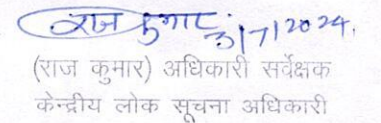 राज कुमार 3/7/2024.
(राज कुमार) अधिकारी सर्वेक्षक
केन्द्रीय लोक सूचना अधिकारी